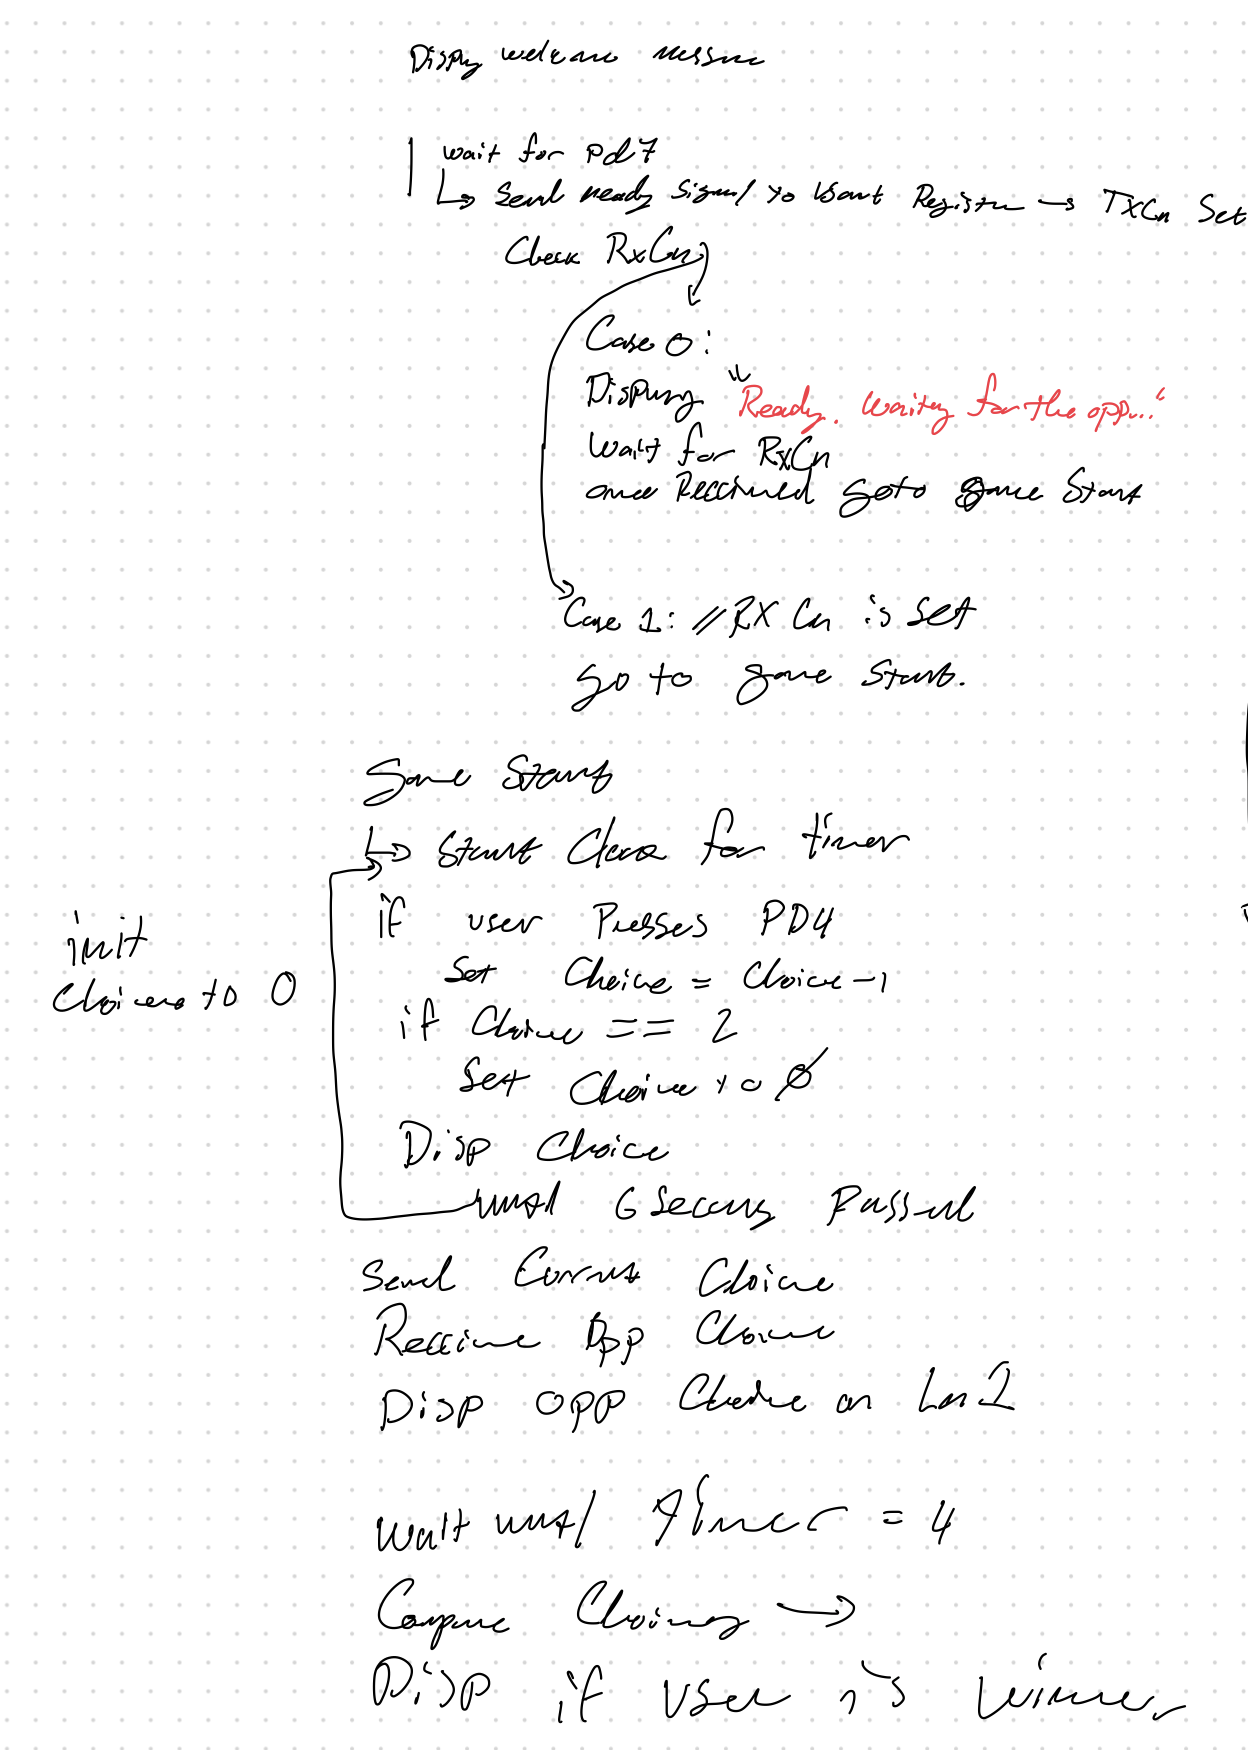 Display welcome message
wait for Pd7
↳ Send ready signal to Usart Register → TXCn Set
Check RxCn
Case 0:
Display "Ready. Waiting for the opp..."
Wait for RxCn
once Received goto game Start
Case 1: // RX Cn is Set
go to game Start.
Game Start
↳ Start Clock for timer
if user Presses PD4
Set Choice = Choice - 1
init
Choices to 0
if Choice == 2
Set Choice to 0
Disp Choice
until 6 Seconds Passed
Send Current Choice
Receive Opp Choice
Disp opp Choice on Ln 2
Wait until Timer = 4
Compare Choices →
Disp if user is winner